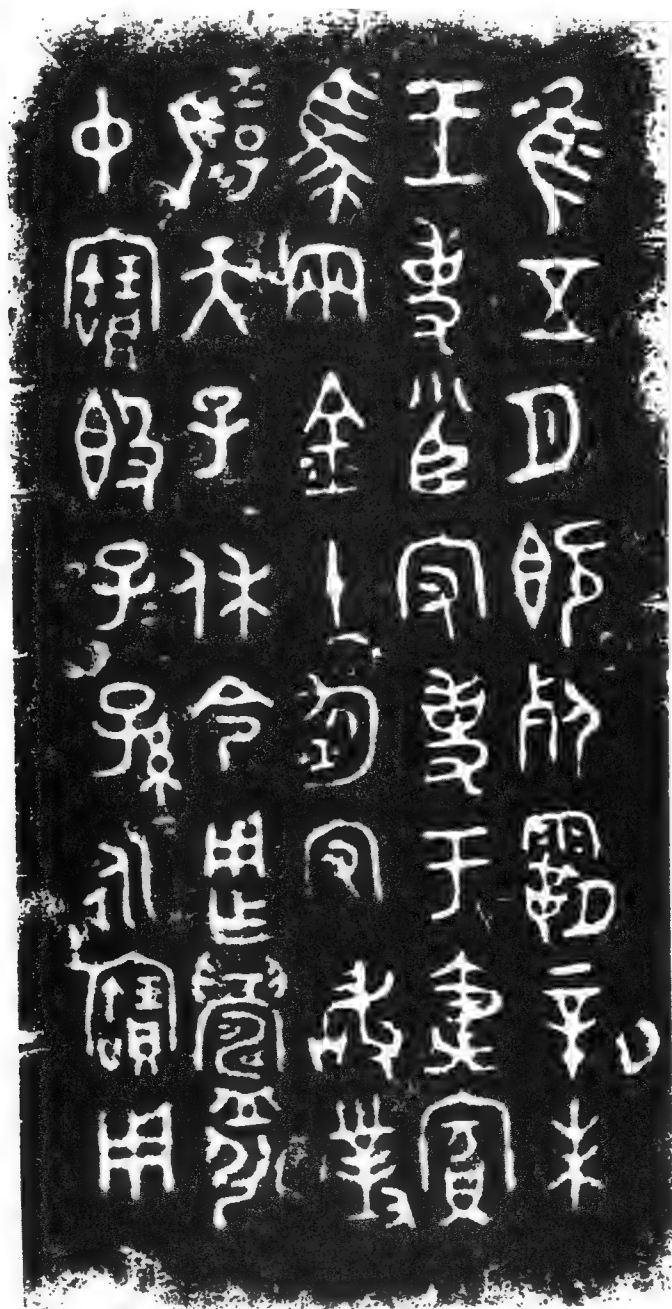 隹五月既死霸辛未
王吏小臣守吏于夷賓
馬兩金十鈞守敢對
揚天子休令用乍鑄引
中寶簋子=孫=永寶用